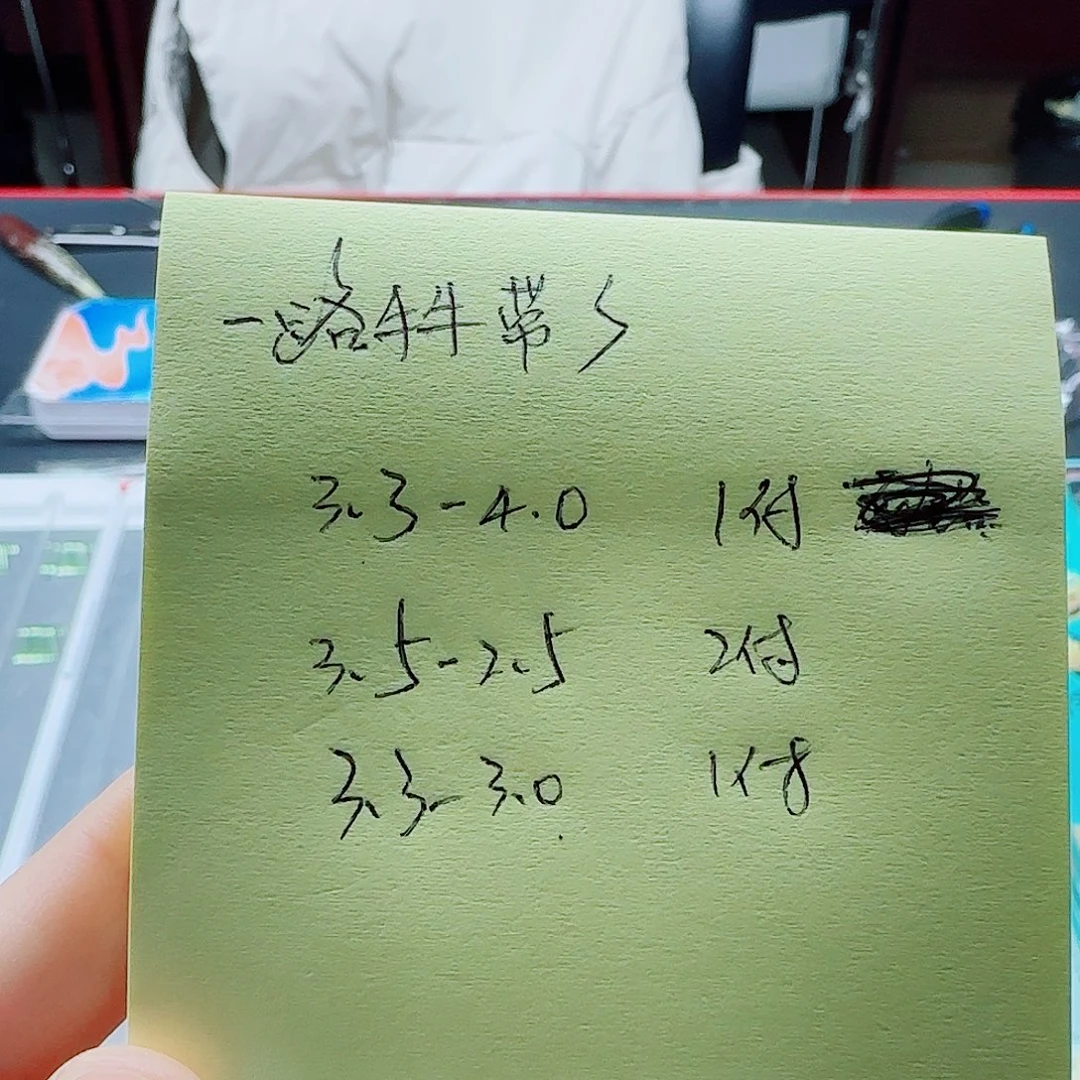 一路牛牛带S
3.3-4.0 1付
3.5-2.5 2付
3.3-3.0 1付